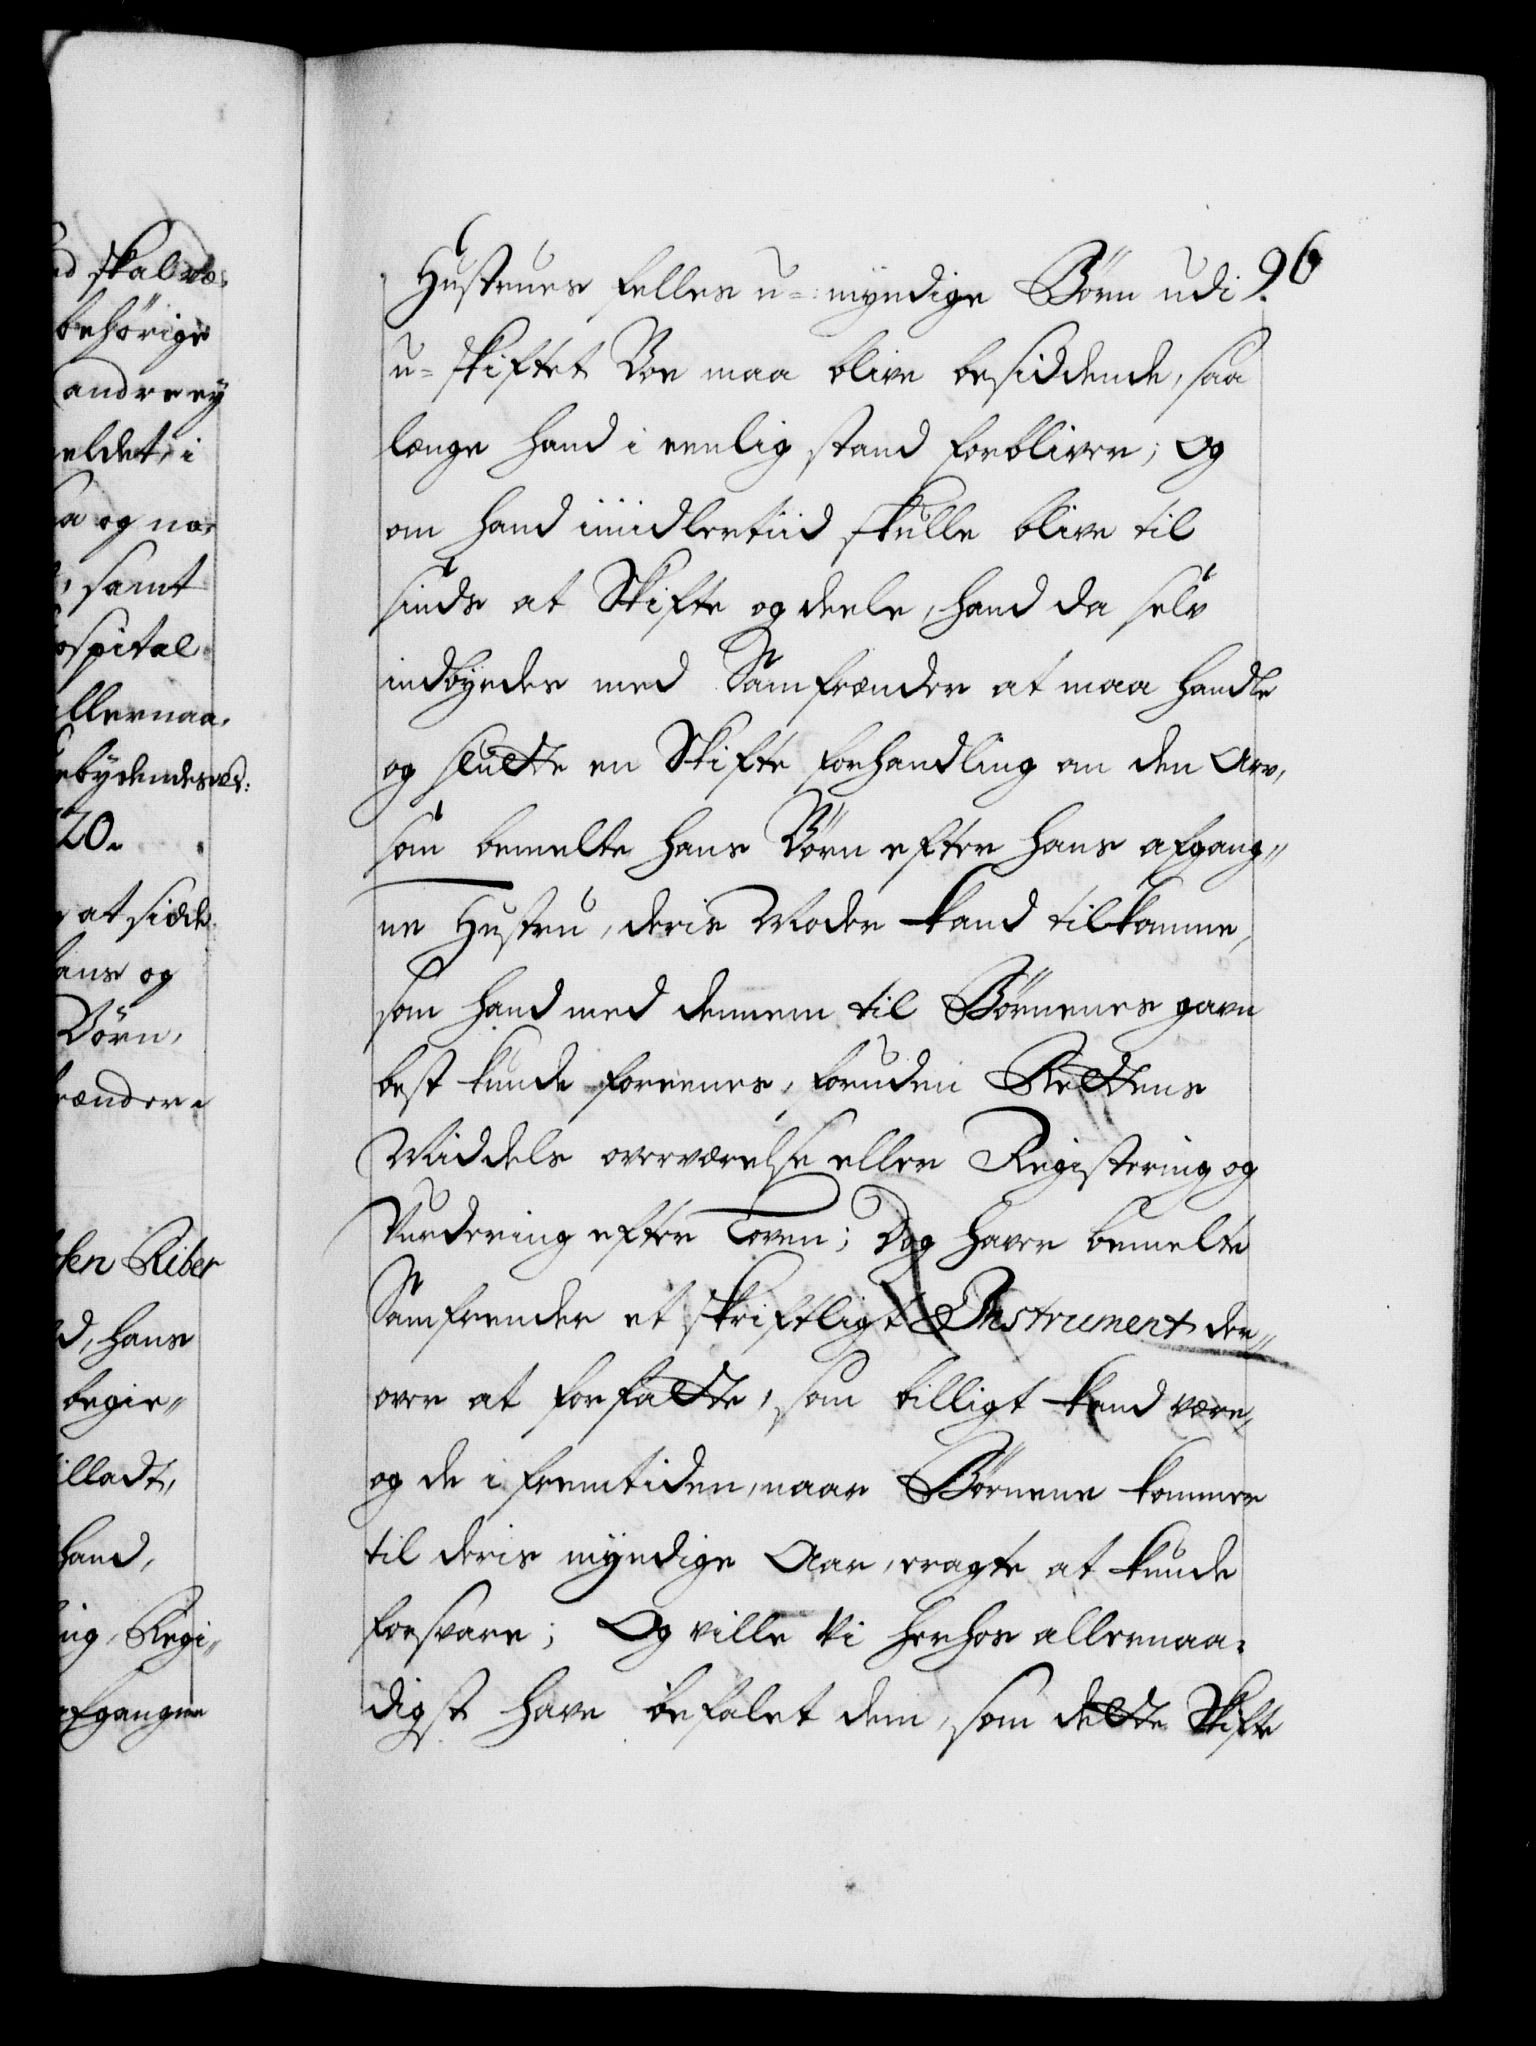 96
Hustrues felles u-myndige Börn udi
u-skiftet Boe maa blive besiddende, saa
længe hand i eenlig stand forbliver; og
om hand imidlertiid skulle blive til
sinds at Skifte og deele, hand da selv
indbyrdes med Samfrænder at maa handle
og slutte en Skifte forhandling om den Arv,
som bemelte hans Börn efter hans afgang-
ne Hustru, deris Moder kand tilkomme,
som hand med dennem til Börnenes gavn
best kunde foreenes, foruden Rettens
Middels overværelse eller Registering og
Vurdering efter Loven; Dog haver bemelte
Samfrender et skriftligt Instrument der-
over at forfatte, som billigt kand være,
og de i fremtiden, naar Börnene kommer
til deris myndige Aar, eragte at kunde
forsvare; Og ville Vi herhos allernaa-
digst have befalet dem, som dette Skifte
skal væ-
behörige
andre ey
meldet, i
og nor
, samt
ospital
llernaa-
ebydendes
20.
at sidde
hans og
Börn,
rænder.
sen Riber
d, hans
begie-
illadt,
hand,
ing, Regi-
afgangne